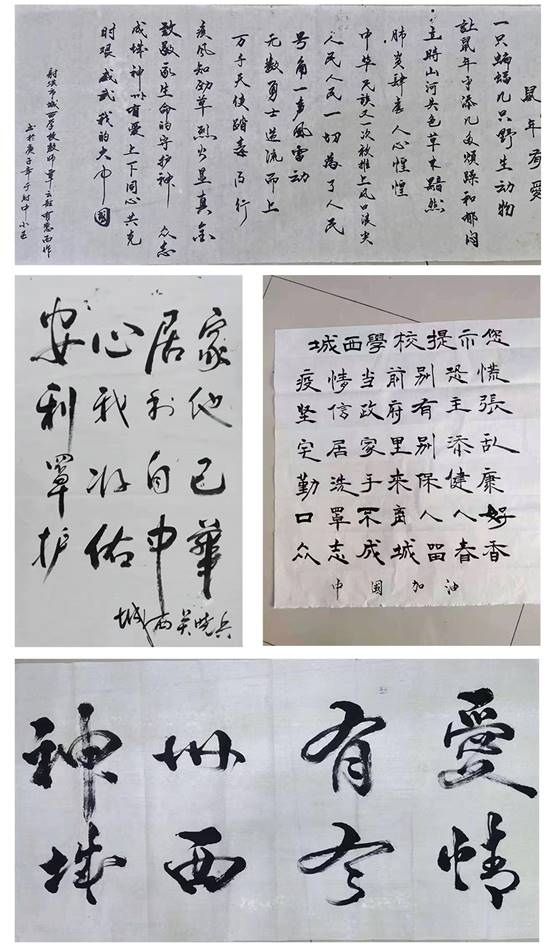 鼠年有愛
一只蝙蝠几只野生动物
让鼠年平添几多烦躁和郁闷
山河失色草木黯然
肺炎肆虐人心惶惶
中华民族又一次被推上风口浪尖
人民人民一切为了人民
号角一声风雷动
无数勇士逆流而上
万千天使踏 而行
疾风知劲草烈火显真金
致敬 生命的守护神 众志
成城神州有爱上下同心共克
时艰威武我的大中国
射洪市城西学校教师 有感而作
安心居家
利我利他
罩你自己
护佑中華
城西吴晓兵
城西學校提示您
疫情当前别恐慌
坚信政府有主張
宅居家里别添乱
勤洗手来保健康
口罩不离人人好
众志成城留春香
中国加油
神州有愛
城西 情